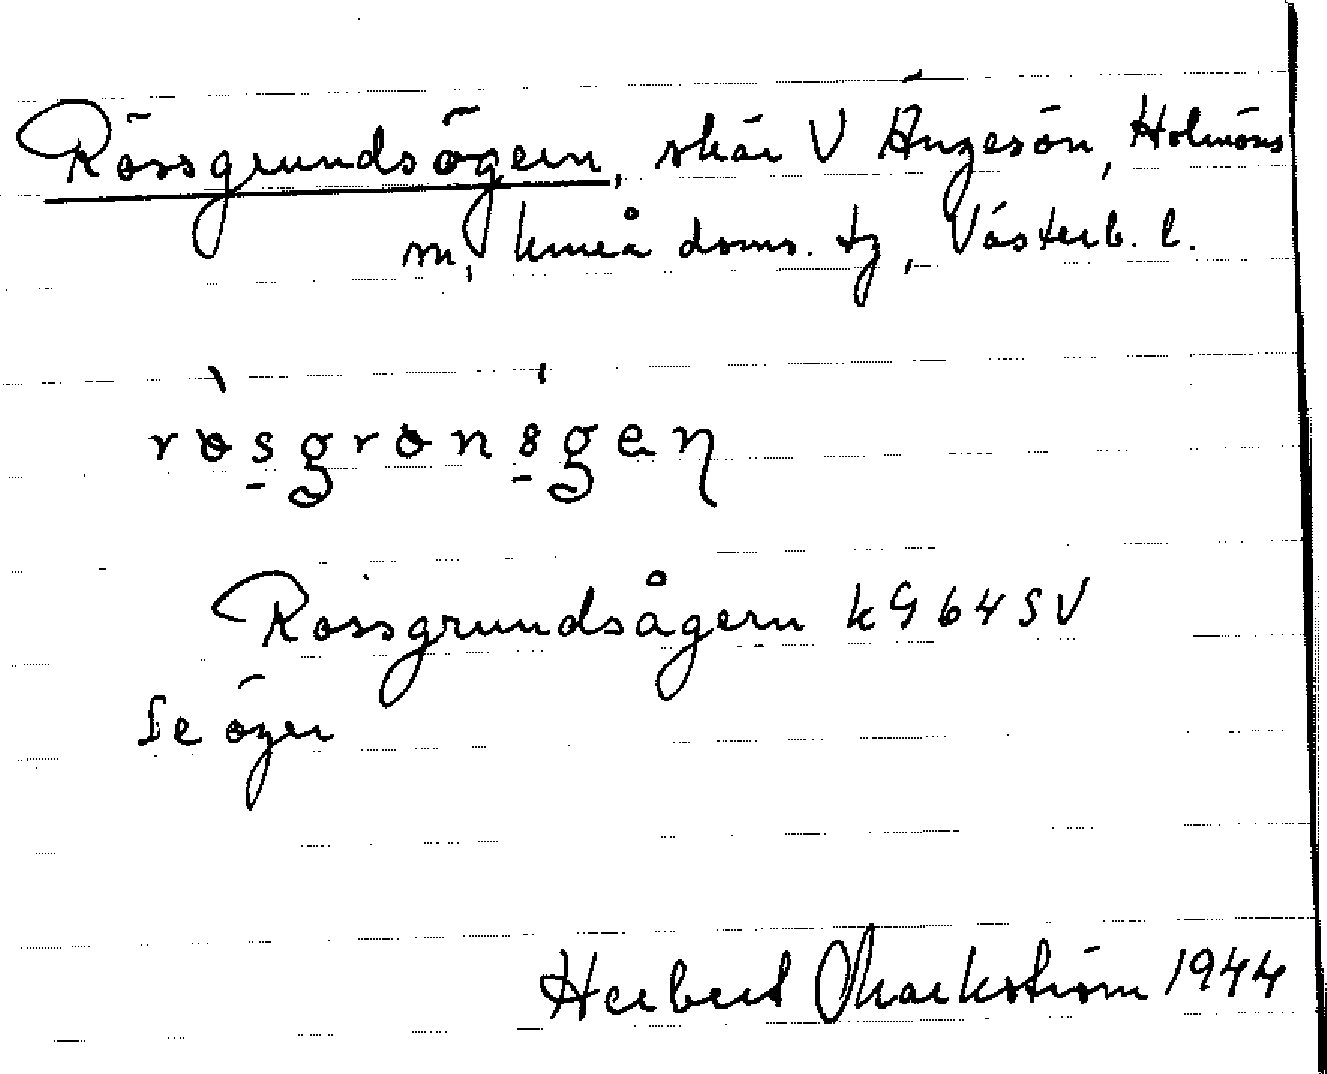 Rössgrundsögern, skär V Ängesön, Holmöns
m, Umeå doms. tg, Västerb. l.
Rossgrundsågern kG 64 SV
Se öger
Herbert Markström 1944